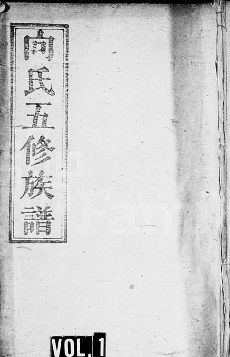 向氏五修族譜
VOL. 1